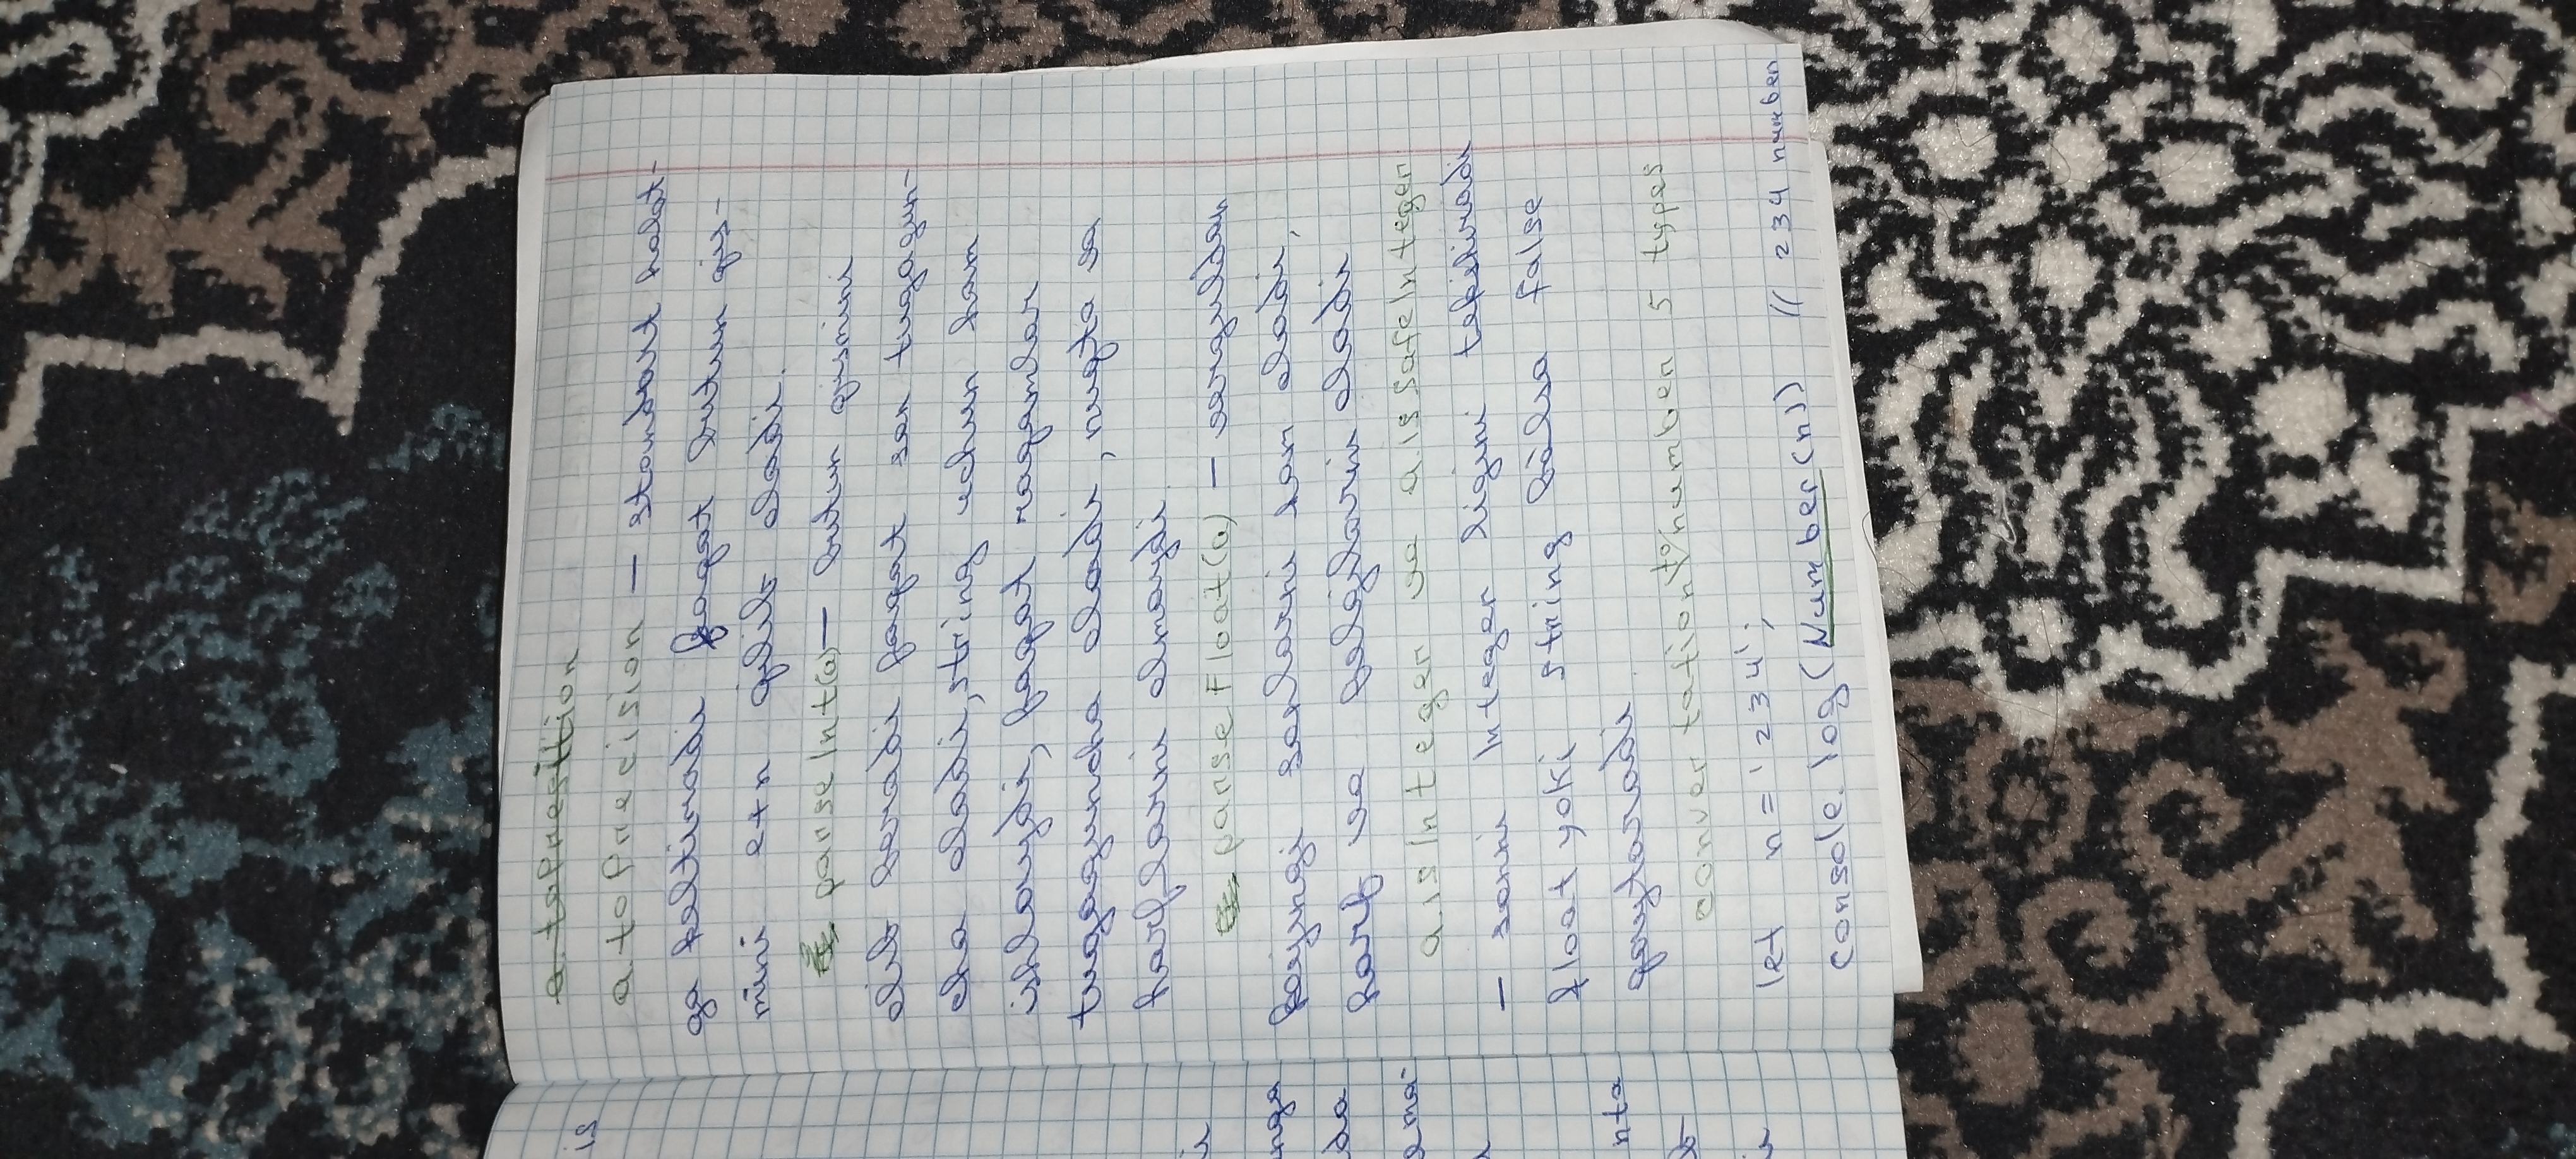 a.topresition
a.toprecision — standart holat-
ga keltiradi faqat butun qis-
mini etn qilib oladi.
parseInt(a) — butun qismini
olib beradi faqat son tugagun-
cha oladi, string uchun ham
ishlaydi, faqat raqamlar
tugaguncha oladi, nuqta va
harflarni olmaydi.
parseFloat(a) — verguldan
keyingi sonlarni ham oladi,
harf va belgilarni oladi
a.isInteger va a.isSafeInteger
— sonni Integer ligini tekshiradi
float yoki string bo'lsa false
qaytaradi
convertation to number 5 types
let n = '234';
console.log(Number(n)) // 234 number
is
nga
ema-
nta